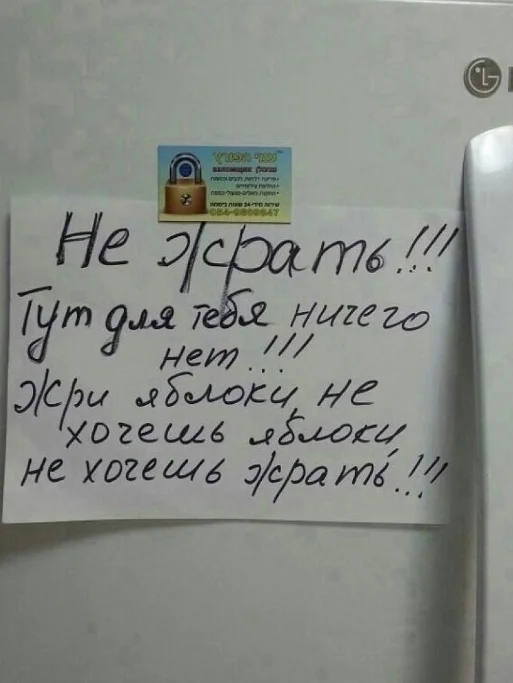 LG
взломщик замков
054-9809847
Не жрать!!!
Тут для тебя ничего
нет!!!
Жри яблоки, не
хочешь яблоки,
не хочешь жрать!!!